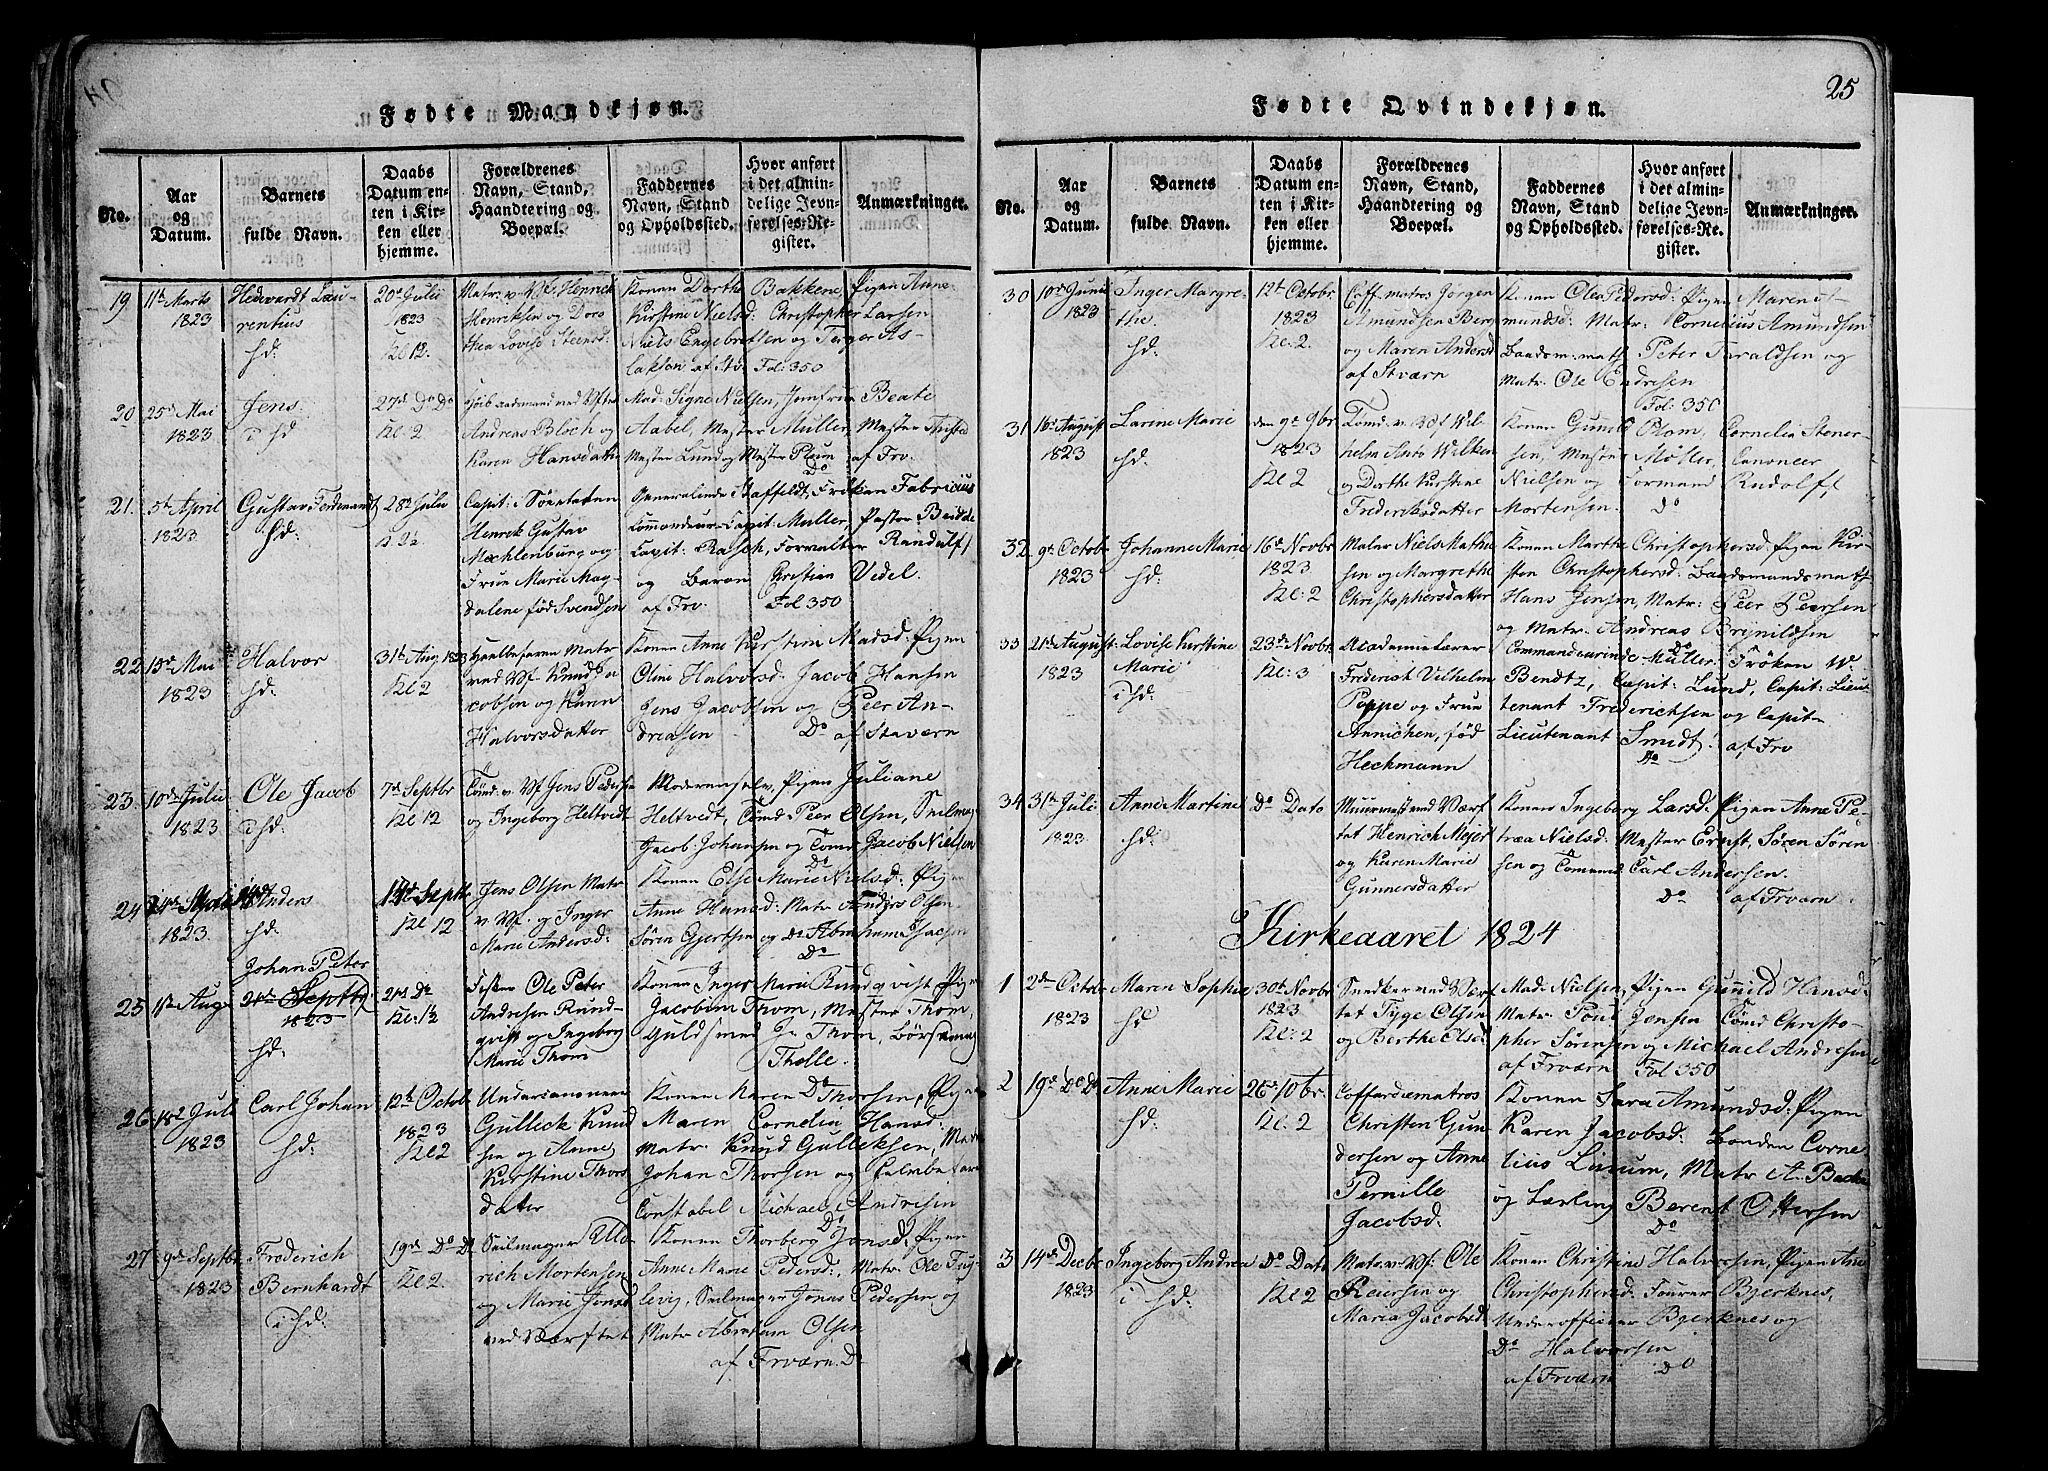 Fødte Mandkjøn.
No.
Aar og Datum.
Barnets fulde Navn.
Daabs Datum enten i Kirken eller hjemme.
Forældrenes Navn, Stand, Haandtering og Boepæl.
Faddernes Navn, Stand og Opholdssted.
Hvor anført i det almindelige Jevnførelses-Register.
Anmærkninger.
19. 11te Marts 1823
Hedevardt Laurentius
hd:
20de Julii 1823
Kl 12.
Matr: v. Vft. Henrich
Henriksen og Doro
thea Lovise Steensd:
Konen Dorthe Bakkene, Pigen Anne
Kirstine Nielsd: Christopher Larsen
Niels Engebretsen og Terger As-
lakson af Stv. Fol: 350
20 25de Mai 1823
Jens
i hd
27de Do Do
Kl: 2
Andreas Bloch og
Karen Hansdatter
Mad: Signe Nielsen, Jomfrue Beate
Aabel, Mester Müller, Mester
Mester Lund og Mester Plum af Frv.
Do
21. 5te April 1823
Gustav Ferdinandt
hd:
28de Julii
Capit: i Søeetaten
Henrik Gustav
Mechlenburg og
Frue Marie Mag
dalene fød Svendsen
Generalinde Staffeldt, Frøken Fabricius
Commandeur-Capit: Müller, Pastor
Capit: Rasch, Forvalter Randulff
og Baron Christian Vedel.
af Frv. Fol 350
22 15de Mai 1823
Halvor
hd:
31te Aug. 1823
Kl 2
Heelbefaren Matr
ved Vf. Knud Ja
cobsen og Karen
Halvorsdatter
Konen Anne Kirstine Madsd: Pigen
Oline Halvorsd: Jacob Hansen
Jens Jacobsen og Peer An-
dreasen Do af Stavern
23. 10de Julii 1823
Ole Jacob
i hd:
7de Septbr
Kl 12
Tømd. v. Vf Jens Peders
og Ingeborg Heltvedt
Moderen selv, Pigen Juliane
Heltvedt, Tømd Peer Olsen, Seilmag
Jacob Johansen og Tømr Jacob Nielsen
Do
24 1823.
Anders
hd:
14de Septbr
Kl 12
Jens Olsen Matr
v Vf. og Inger
Marie Andersd:
Konen Else Marie Nielsd: Pigen
Anne Hansd: Matr Anders Olsen
Søren Gjertsen og Do Abraham
Do
25 1te Aug
Johan Peter
21de Septb:
1823
hd:
21de Do
Kl: 12
Ole Peter
Andresen Rund
qvist og Ingeborg
Marie Thom
Konen Inger Marie Rundqvist Pigen
Jacobine Thom, Mester Thom,
Guldsmed Jr Thom,
Tholle.
26 18de Juli 1823
Carl Johan
hd:
12te Octob 1823
Kl 2
Gulleck Knud
sen og Anne
Kirstine Thors
datter
Konen Maren Do Thorsen, Pigen
Maren Cornelia Hansd:
Matr Knud Gulleksen,
Johan Thorsen og
Constabel Michael Andresen
Do
27 9de Septbr 1823
Frederich Bernhardt
i hd:
19de Do Do
Kl 2.
Seilmager Ulle
rich Mortensen
og Marie Jensd
ved Værftet
Konen Thorberg Jonsd: Pigen
Anne Marie Pedersd: Matr Ole Fug
levig, Seilmager Jonas Pedersen og
Matr Abraham Olsen
af Frværn. Do
25
Fødte Qvindekjøn.
No.
Aar og Datum.
Barnets fulde Navn.
Daabs Datum enten i Kirken eller hjemme.
Forældrenes Navn, Stand, Haandtering og Boepæl.
Faddernes Navn, Stand og Opholdssted.
Hvor anført i det almindelige Jevnførelses-Register.
Anmærkninger.
30 10de Junii 1823
Inger Margrethe.
hd:
12te Octobr 1823
Kl: 2.
Coff. matros Jørgen
Amundsen Berg
og Maren Andersd
af Stværn
Konen Ole Pedersd: Pigen Maren A-
mundsd: Matr: Cornelius Amundsen
Baadsm: math Peter Taraldsen og
Matr. Ole Endresen
Fol: 350
31 16de August 1823
Larine Marie
hd:
den 9de 9br 1823
Kl 2
Tømd. v. Vf Wil
helm Anto Wilken
og Dorthe Kirstine
Frederiksdatter
Konen Gunild Plom, Cornelia Stener-
sen, Mester Møller, Canoneer
Nielsen og Formand Rudolff
Mortensen. Do
32 9de Octobr 1823
Johanne Marie
hd:
16de Novbr 1823
Kl: 2
Matr Niels Mathi
sen og Margrethe
Christophersdatter
Konen Marthe Christophersd: Pigen Kir-
sten Christophersd: Baadsmandsmath
Hans Jensen, Matr: Peer Peersen
og Matr. Andreas Brynildsen
Do
33 21de August 1823
Lovise Kirstine Marie
i hd:
23de Novbr
Kl: 3
Academielærer
Frederich Vilhelm
Poppe og Frue
Annichen, fød
Heckmann
Commandeurinde Müller. Frøken W.
Bendtz, Capit: Lund, Capit: Lieu
tenant Frederichsen og Capit-
Lieutenant Smidt. af Frv
Do
34 31te Julii 1823.
Anne Martine
hd:
Do Dato
Muurmest ved Værf
tet Henrich Mejer
og Karen Marie
Gunnersdatter
Konen Ingeborg Larsd: Pigen Anne Pe-
trea Nielsd: Mester Ernst, Søren Søren
sen og Tømmd Carl Andersen.
Do af Frværn.
Kirkeaaret 1824
1 2den Octob 1823
Maren Sophie
hd
30te Novbr 1823
Kl: 2
Snedker ved Værf
tet Tyge Olsen
og Berthe Olsd:
Mad: Nielsen, Pigen Gunild Hansd:
Matr: Poul Jensen Tømd Christo-
pher Sørensen og Michael Andresen
af Frværn Fol 350
2 19de Do Do
Anne Marie
hd:
26de 10br.
Kl: 2
Coffardiematros
Christen Gun
dersen og Anne
Pernille
Jacobsd:
Konen Sara Amundsd: Pigen
Karen Jacobsd: Bonden Corne
lius Linum, Matr A. Back
og Lærling Berent Ottersen
Do
3 14de Decbr 1823
Ingeborg Andrea
i hd:
Do Dato
Kl 2
Matr. v. Vf: Ole
Reiersen og
Maria Jacobsd:
Konen Christine Halvorsen, Pigen Ane
Christophersd: Fourer Bjerknes,
Underofficier Bjerknes og
Do Halvorsen
af Frværn Do